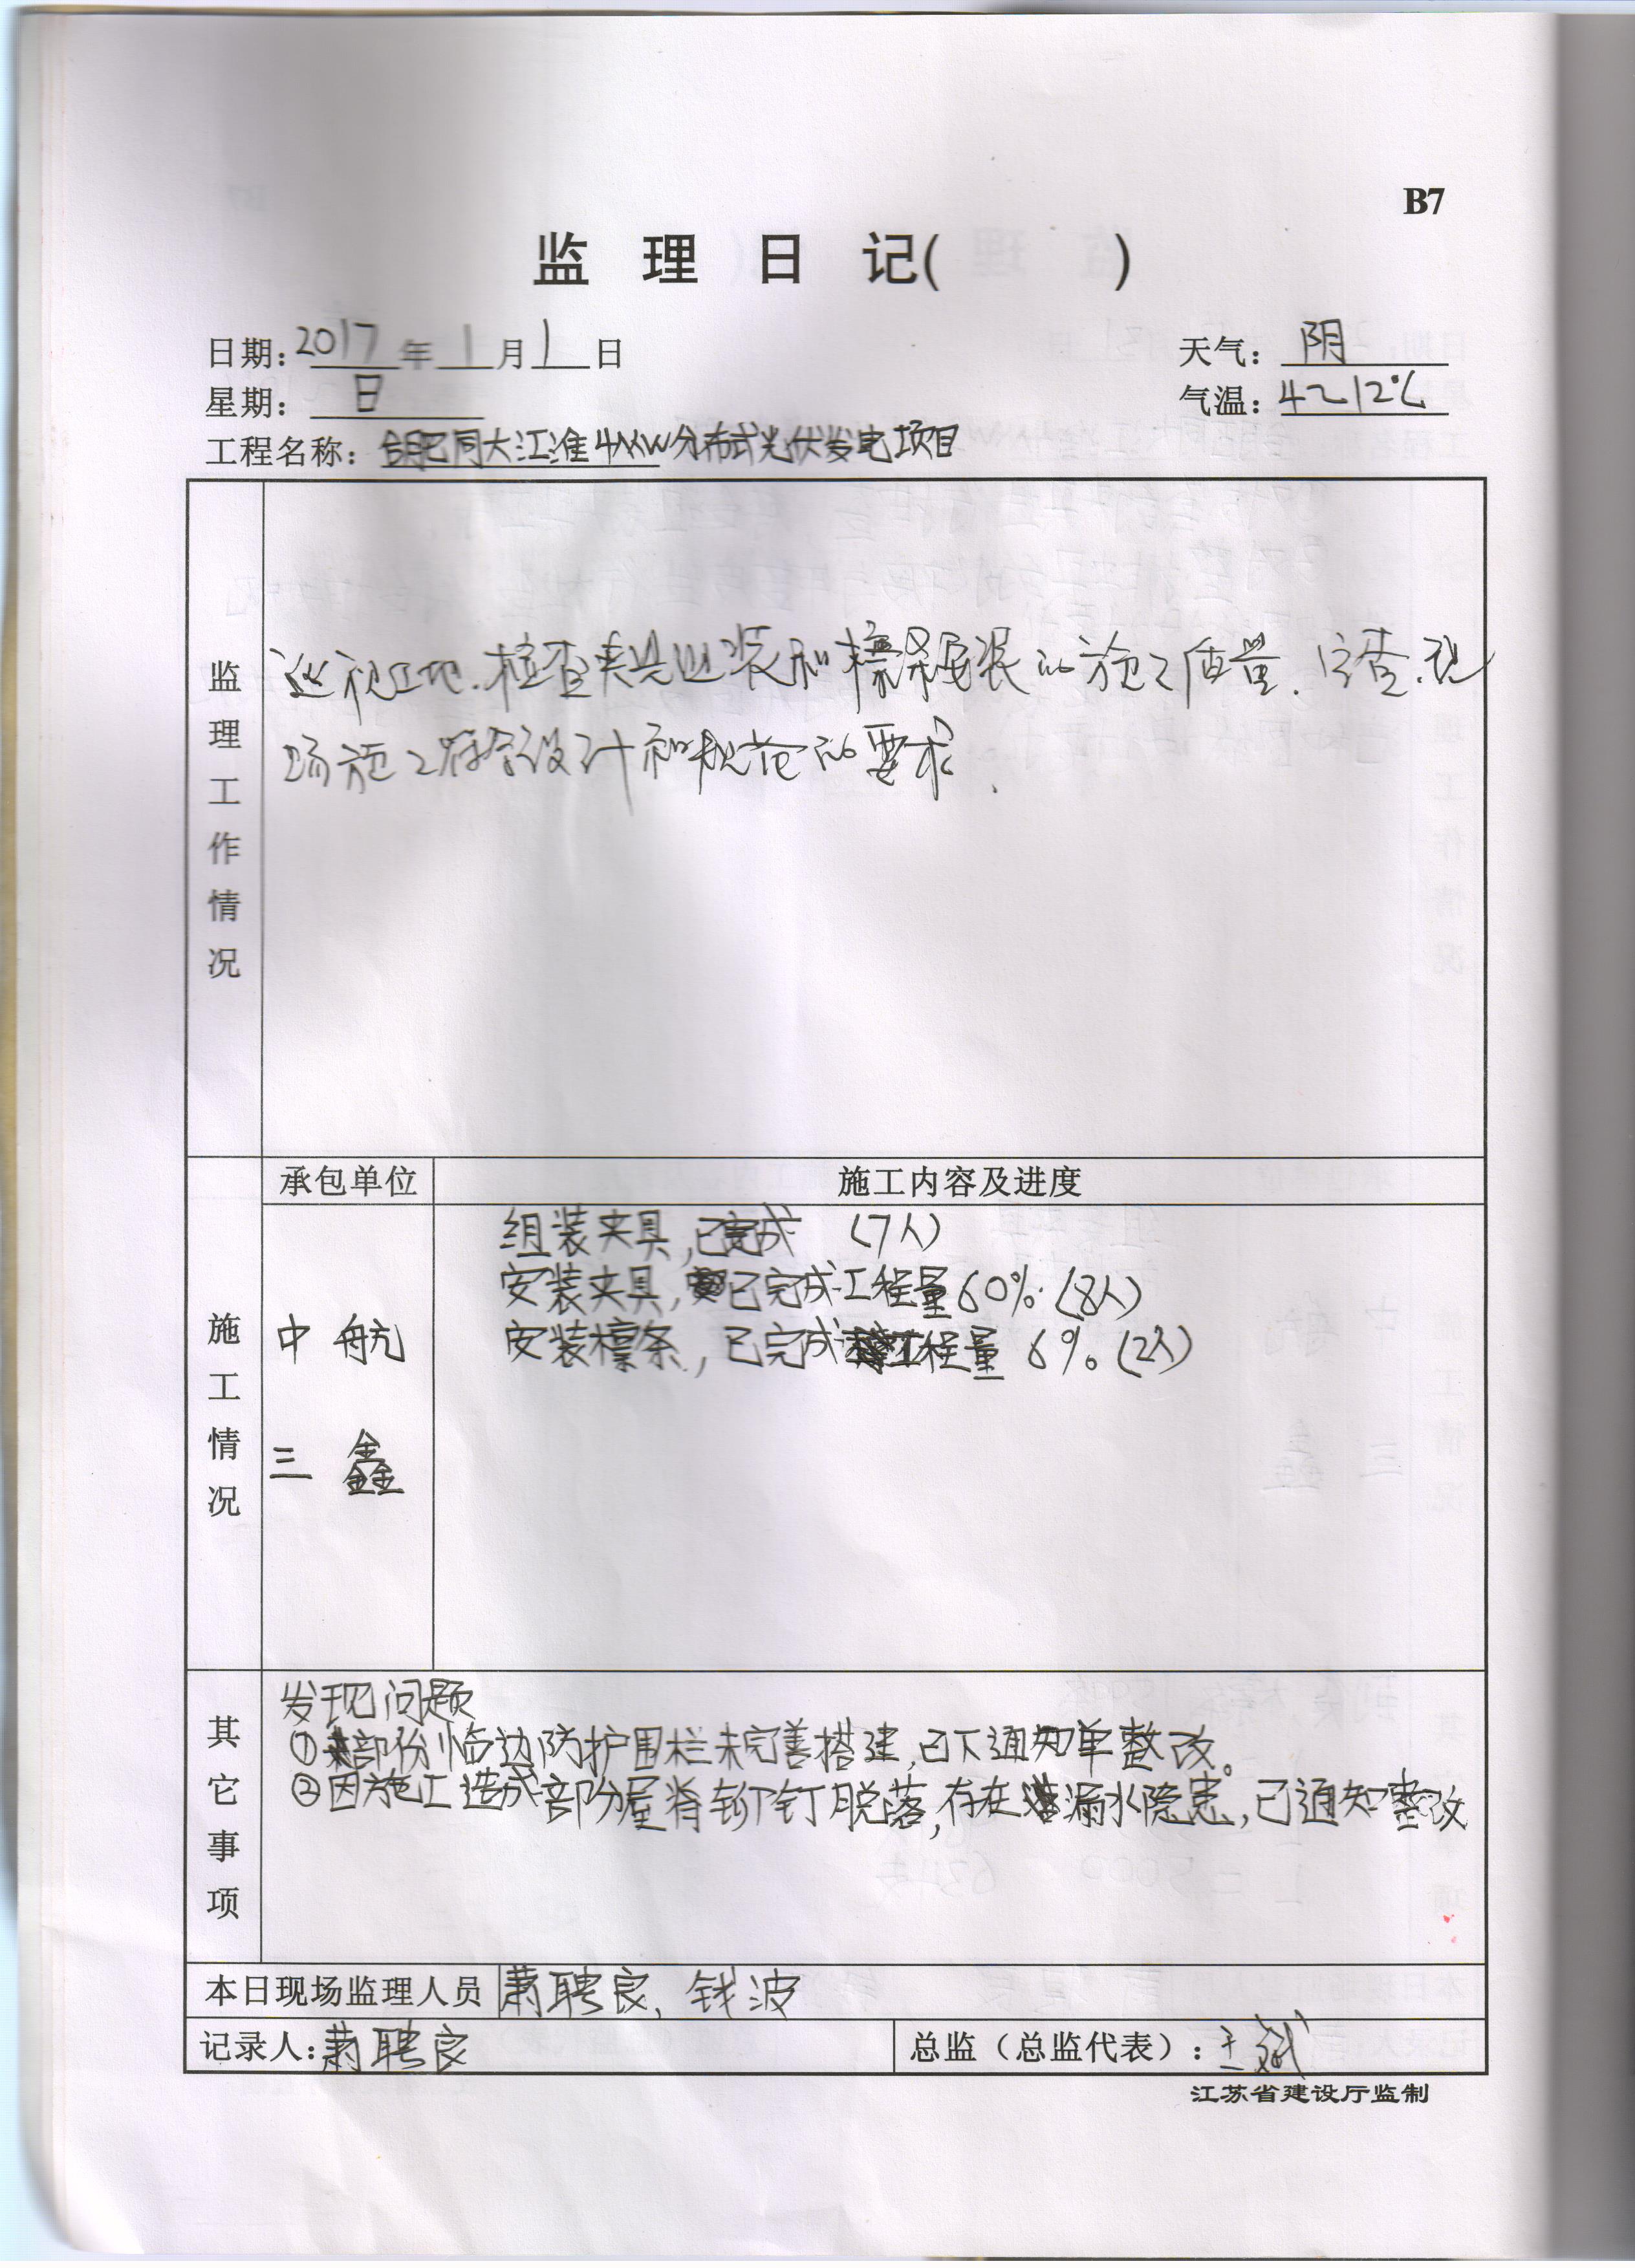 B7
监 理 日 记( )
日期: 2017 年 1 月 1 日 天气: 阴
星期: 日 气温: 4~12℃
工程名称: 合肥同大江淮4MW分布式光伏发电项目
监理工作情况
巡视工地.检查夹具安装和檩条安装的施工质量.检查.现
场施工符合设计和规范的要求.
承包单位 施工内容及进度
施工情况
中航
三鑫
组装夹具,已完成 (7人)
安装夹具,已完成工程量60%.(8人)
安装檩条,已完成工程量 6%(2人)
其它事项
发现问题
①部份临边防护围栏未完善搭建,已下通知单整改。
②因施工造成部分屋脊铆钉脱落,存在漏水隐患,已通知整改
本日现场监理人员 萧聘良、钱波
记录人: 萧聘良 总监(总监代表): 王斌
江苏省建设厅监制